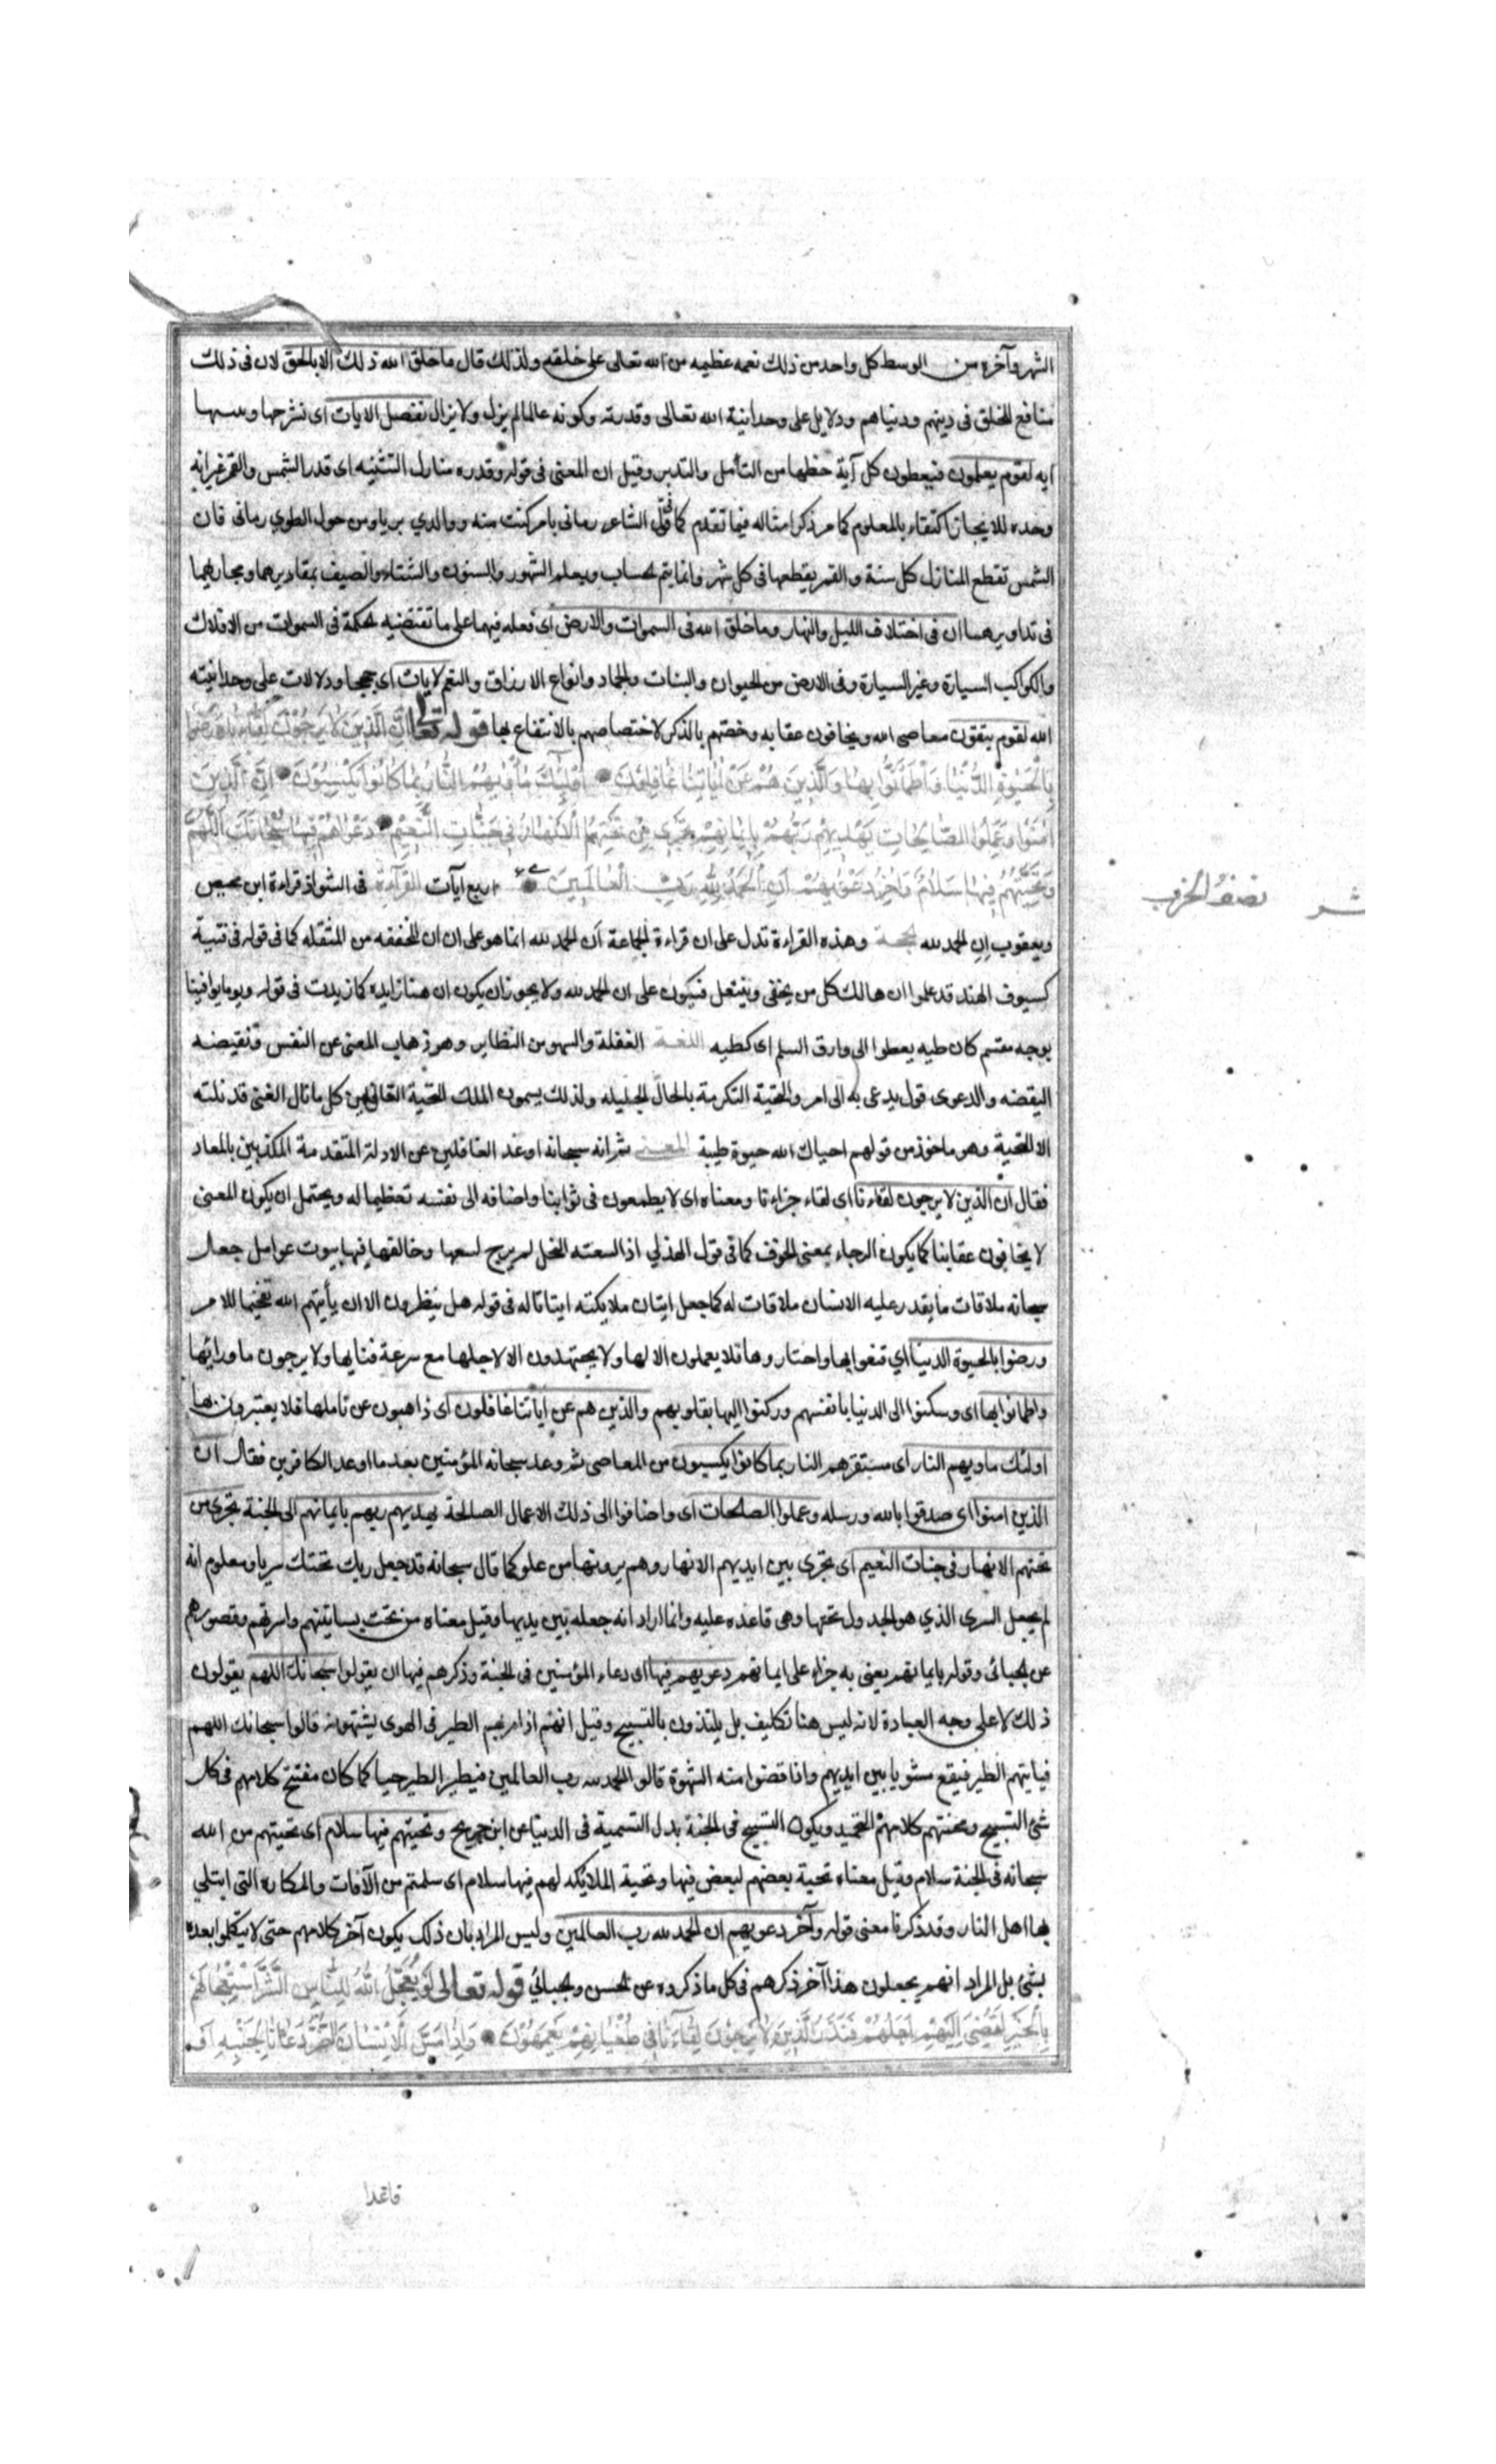 الشهر وآخره من الوسط كل واحد من ذلك نعمه عظيمه من الله تعالى على خلقه ولذلك قال ما خلق الله ذلك الا بالحق لان فى ذلك
منافع للخلق فى دينهم ودنياهم ودلايل على وحدانية الله تعالى وقدرته وكونه عالما لم يزل ولا يزال نفصل الايات اى نشرحها ونبينها
ايه لقوم يعلمون فيعطون كل آية حظها من التأمل والتدبر وقيل ان المعنى فى قوله وقدره منازل التثنيه اى قدر الشمس والقمر غير انه
وحده للايجاز اكتفاء بالمعلوم كما مر ذكر امثاله فيما تقدم كما فى قول الشاعر رمانى بامر كنت منه ووالدي بريا ومن حول الطوي رمانى فان
الشمس تقطع المنازل كل سنة والقمر يقطعها فى كل شهر وانما يتم الحساب ويعلم الشهور والسنون والشتاء والصيف بمقاديرهما ومجاريهما
فى تداويرهما ان فى اختلاف الليل والنهار وما خلق الله فى السموات والارض اى فعله فيهما على ما تقتضيه الحكمة فى السموات من الافلاك
والكواكب السيارة وغير السيارة وفى الارض من الحيوان والنبات والجماد وانواع الارزاق والنعم لايات اى حججا ودلالات على وحدانيته
الله لقوم يتقون معاصى الله ويخافون عقابه وخصهم بالذكر لاختصاصهم بالانتفاع بها قوله تعالى اِنَّ الَّذِينَ لَا يَرْجُونَ لِقَاءَنَا وَرَضُوا
بِالْحَيٰوةِ الدُّنْيَا وَاطْمَأَنُّوا بِهَا وَالَّذِينَ هُمْ عَنْ اٰيَاتِنَا غَافِلُونَ اُولٰئِكَ مَأْوٰيهُمُ النَّارُ بِمَا كَانُوا يَكْسِبُونَ اِنَّ الَّذِينَ
اٰمَنُوا وَعَمِلُوا الصَّالِحَاتِ يَهْدِيهِمْ رَبُّهُمْ بِاِيمَانِهِمْ تَجْرِى مِنْ تَحْتِهِمُ الْاَنْهَارُ فِى جَنَّاتِ النَّعِيمِ دَعْوٰاهُمْ فِيهَا سُبْحَانَكَ اللّٰهُمَّ
وَتَحِيَّتُهُمْ فِيهَا سَلَامٌ وَاٰخِرُ دَعْوٰيهُمْ اَنِ الْحَمْدُ لِلّٰهِ رَبِّ الْعَالَمِينَ اربع آيات القراءة فى الشواذ قراءة ابن محيص
نصف الحزب
ويعقوب ان الحمد لله الحجة وهذه القراءة تدل على ان قراءة الجماعة أن الحمد لله انما هو على ان ان المخففه من المثقله كما فى قوله فى فتية
كسيوف الهند قد علموا ان هالك كل من يحفى وينتعل فيكون على ان الحمد لله ولا يجوز ان يكون ان هنا زايده كما زيدت فى قوله ويوما يوافينا
بوجه مقسم كان ظبيه يعطوا الى وارق السلم اى كظبيه اللغة الغفلة والسهو من النظاير وهو ذهاب المعنى عن النفس ونقيضه
اليقضه والدعوى قول يدعى به الى امر والتحية التكرمة بالحال الجليله ولذلك يسمون الملك التحية القائل من كل ما نال الفتى قد نلته
الا التحية وهو ماخوذ من قولهم احياك الله حيوة طيبة المعنى ثم انه سبحانه اوعد الغافلين عن الادلة المتقدمة المكذبين بالمعاد
فقال ان الذين لا يرجون لقاءنا اى لقاء جزاءنا ومعناه اى لا يطمعون فى ثوابنا واضافه الى نفسه تعظيما له ويحتمل ان يكون المعنى
لا يخافون عقابنا كما يكون الرجاء بمعنى الخوف كما فى قول الهذلي اذا لسعته النحل لم يرج لسعها وخالفها فى بيوت عوامل جعل
سبحانه ملاقات ما يقدر عليه الانسان ملاقات له كما جعل ايتان ملايكته ايتانا له فى قوله هل ينظرون الا ان يأتيهم الله تفخيما للامر
ورضوا بالحيوة الدنيا اي قنعوا بها واختاروها فلا يعملون الا لها ولا يجتهدون الا لاجلها مع سرعة فنايها ولا يرجون ما ورائها
واطمانوا بها اى وسكنوا الى الدنيا بانفسهم وركنوا اليها بقلوبهم والذين هم عن اياتنا غافلون اى ذاهبون عن تاملها فلا يعتبرون بها
اولئك ماويهم النار اى مستقرهم النار بما كانوا يكسبون من المعاصى ثم وعد سبحانه المؤمنين بعد ما اوعد الكافرين فقال ان
الذين امنوا اى صدقوا بالله ورسله وعملوا الصلحات اى واضافوا الى ذلك الاعمال الصالحة يهديهم ربهم بايمانهم الى الجنة تجرى من
تحتهم الانهار فى جنات النعيم اى تجرى بين ايديهم الانهار وهم يرونها من علو كما قال سبحانه قد جعل ربك تحتك سريا ومعلوم انه
لم يجعل السرى الذي هو الجدول تحتها وهى قاعده عليه وانما اراد انه جعله بين يديها وقيل معناه من تحت بساتينهم واسرتهم وقصورهم
عن الجبائى وقوله بايمانهم يعنى به جزاء على ايمانهم دعويهم فيها اى دعاء المؤمنين فى الجنة وذكرهم فيها ان يقولوا سبحانك اللهم يقولون
ذلك لا على وجه العبادة لانه ليس هنا تكليف بل يلتذون بالتسبيح وقيل انهم اذا مر بهم الطير فى الهوى يشتهونه قالوا سبحانك اللهم
فياتيهم الطير فيقع مشويا بين ايديهم واذا قضوا منه الشهوة قالوا الحمد لله رب العالمين فيطير الطير حيا كما كان مفتتح كلامهم فى كل
شئ التسبيح ومختتم كلامهم التحميد ويكون التسبيح فى الجنة بدل التسمية فى الدنيا عن ابن جريح وتحيتهم فيها سلام اى تحيتهم من الله
سبحانه فى الجنة سلام وقيل معناه تحية بعضهم لبعض فيها وتحية الملائكه لهم فيها سلام اى سلمتم من الآفات والمكاره التى ابتلي
بها اهل النار وقد ذكرنا معنى قوله وآخر دعويهم ان الحمد لله رب العالمين وليس المراد بان ذلك يكون آخر كلامهم حتى لا يتكلموا بعده
بشئ بل المراد انهم يجعلون هذا آخر ذكرهم فى كل ما ذكروه عن الحسن والجبائي قوله تعالى وَلَوْ يُعَجِّلُ اللّٰهُ لِلنَّاسِ الشَّرَّ اسْتِعْجَالَهُمْ
بِالْخَيْرِ لَقُضِىَ اِلَيْهِمْ اَجَلُهُمْ فَنَذَرُ الَّذِينَ لَا يَرْجُونَ لِقَاءَنَا فِى طُغْيَانِهِمْ يَعْمَهُونَ وَاِذَا مَسَّ الْاِنْسَانَ الضُّرُّ دَعَانَا لِجَنْبِهِ اَوْ
قاعدا